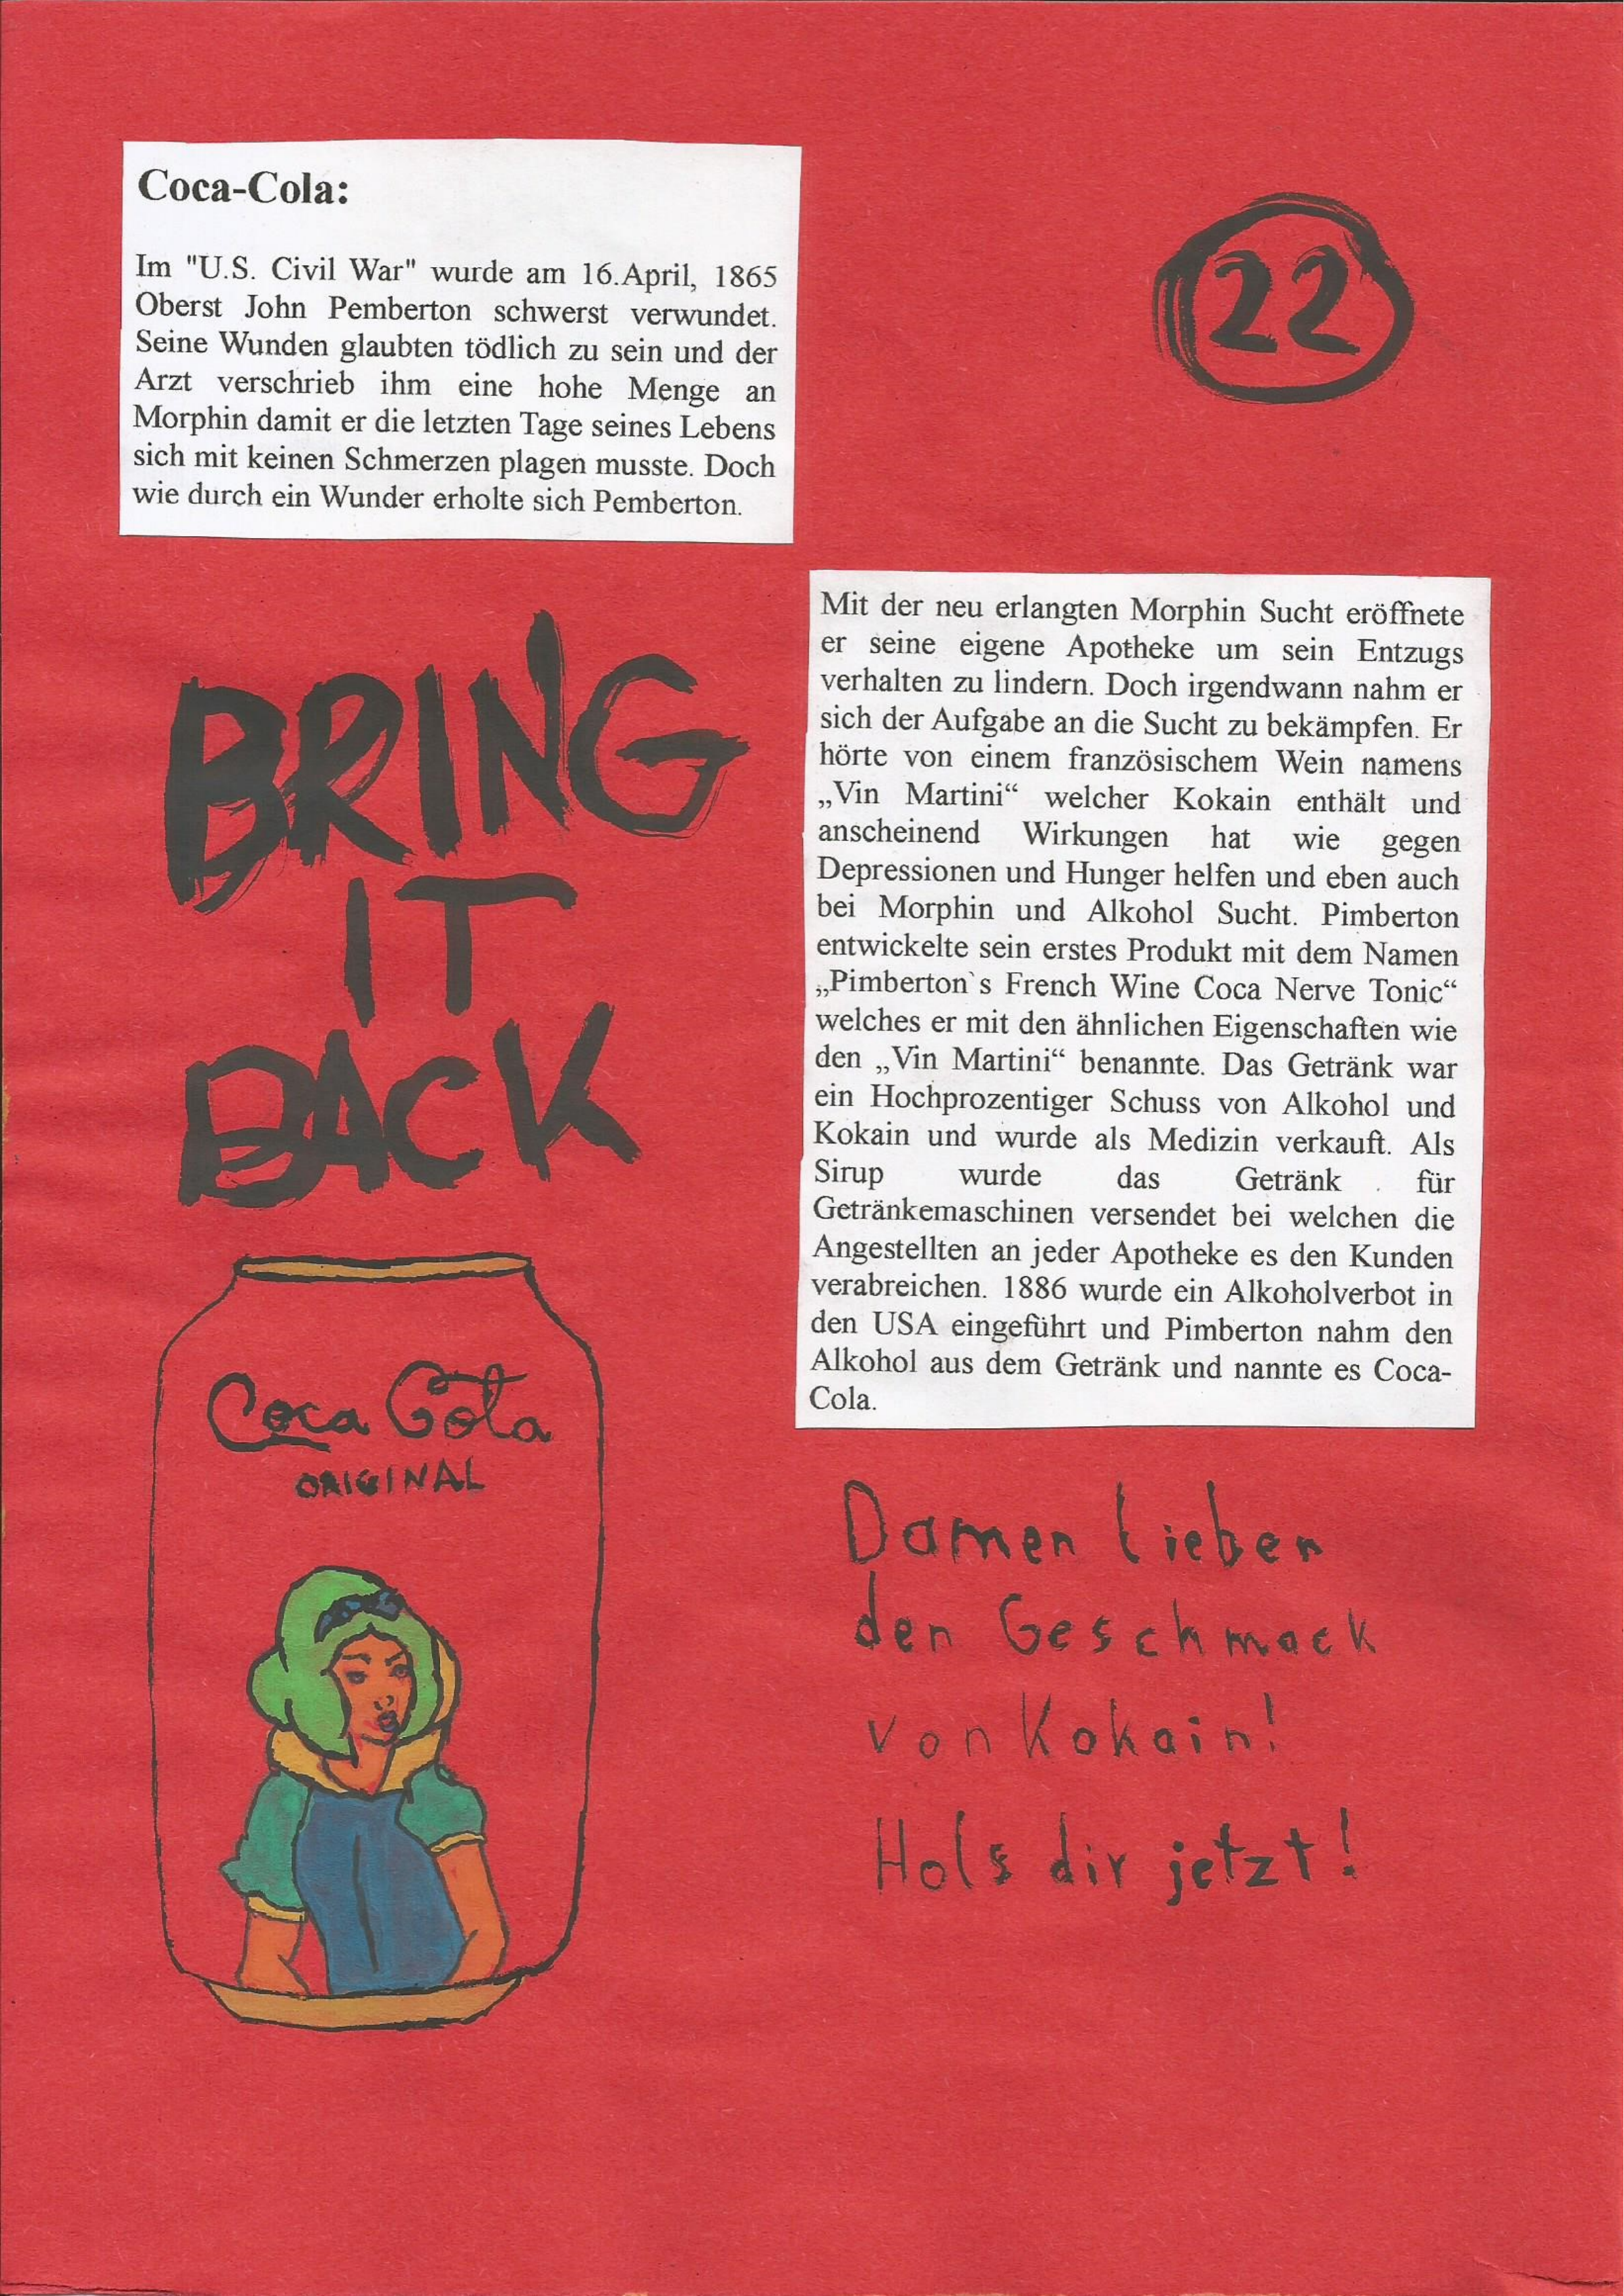 Coca-Cola:
Im "U.S. Civil War" wurde am 16.April, 1865
Oberst John Pemberton schwerst verwundet.
Seine Wunden glaubten tödlich zu sein und der
Arzt verschrieb ihm eine hohe Menge an
Morphin damit er die letzten Tage seines Lebens
sich mit keinen Schmerzen plagen musste. Doch
wie durch ein Wunder erholte sich Pemberton.
22
Mit der neu erlangten Morphin Sucht eröffnete
er seine eigene Apotheke um sein Entzugs
verhalten zu lindern. Doch irgendwann nahm er
sich der Aufgabe an die Sucht zu bekämpfen. Er
hörte von einem französischem Wein namens
„Vin Martini“ welcher Kokain enthält und
anscheinend Wirkungen hat wie gegen
Depressionen und Hunger helfen und eben auch
bei Morphin und Alkohol Sucht. Pimberton
entwickelte sein erstes Produkt mit dem Namen
„Pimberton`s French Wine Coca Nerve Tonic“
welches er mit den ähnlichen Eigenschaften wie
den „Vin Martini“ benannte. Das Getränk war
ein Hochprozentiger Schuss von Alkohol und
Kokain und wurde als Medizin verkauft. Als
Sirup wurde das Getränk für
Getränkemaschinen versendet bei welchen die
Angestellten an jeder Apotheke es den Kunden
verabreichen. 1886 wurde ein Alkoholverbot in
den USA eingeführt und Pimberton nahm den
Alkohol aus dem Getränk und nannte es Coca-
Cola.
BRING
IT
BACK
Coca Cola
ORIGINAL
Damen lieben
den Geschmack
von Kokain!
Hols dir jetzt!